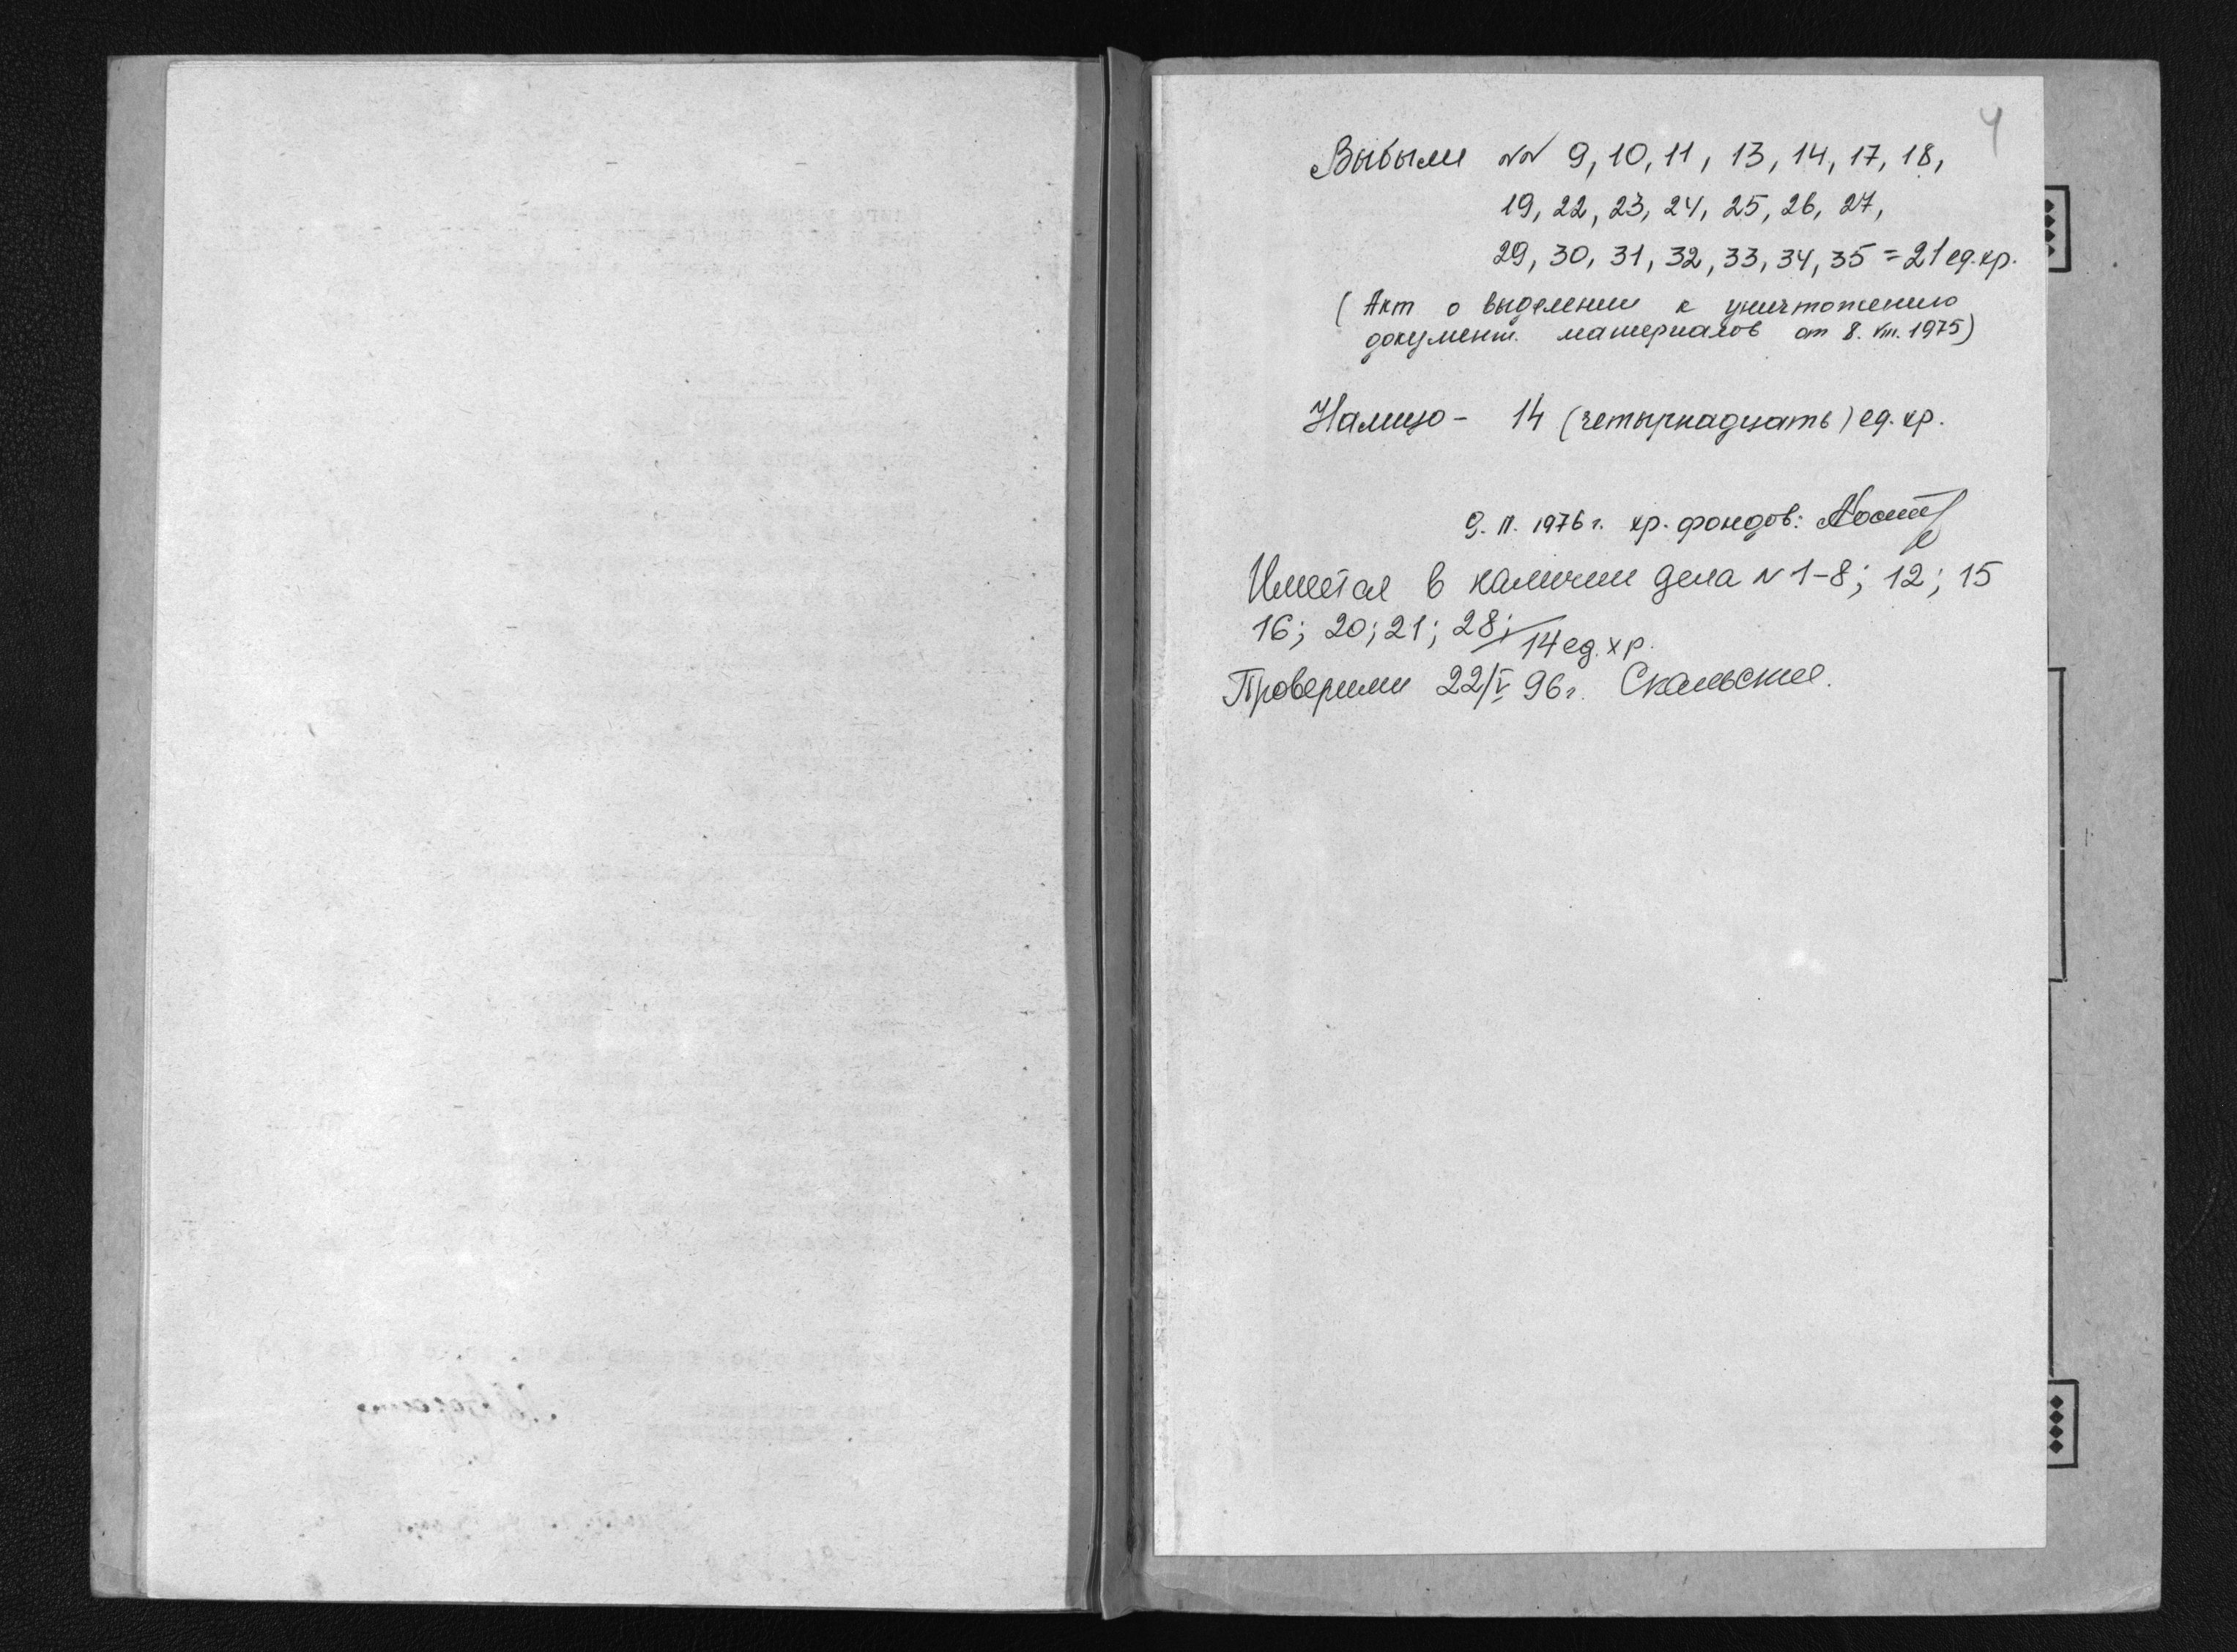 4
Выбыли №№ 9, 10, 11, 13, 14, 17, 18,
19, 22, 23, 24, 25, 26, 27,
29, 30, 31, 32, 33, 34, 35 = 21 ед. хр.
(Акт о выделении к уничтожению
документ. материалов от 8. VIII. 1975)
Налицо - 14 (четырнадцать) ед. хр.
9. II. 1976 г. хр. фондов:
Имеется в наличии дела N 1-8; 12; 15
16; 20; 21; 28; 14 ед. хр.
Проверили 22/V 96 г.